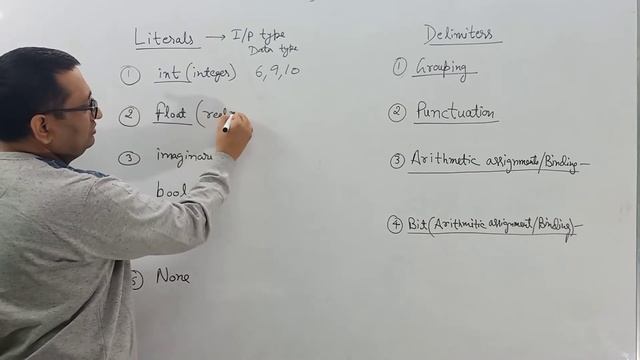 Literals → I/P type
Data type
① int (integer) 6, 9, 10
② float (real
③ imaginary
bool
⑤ None
Delimiters
① Grouping
② Punctuation
③ Arithmetic assignments/Binding -
④ Bit (Arithmitic assignment/Binding) -